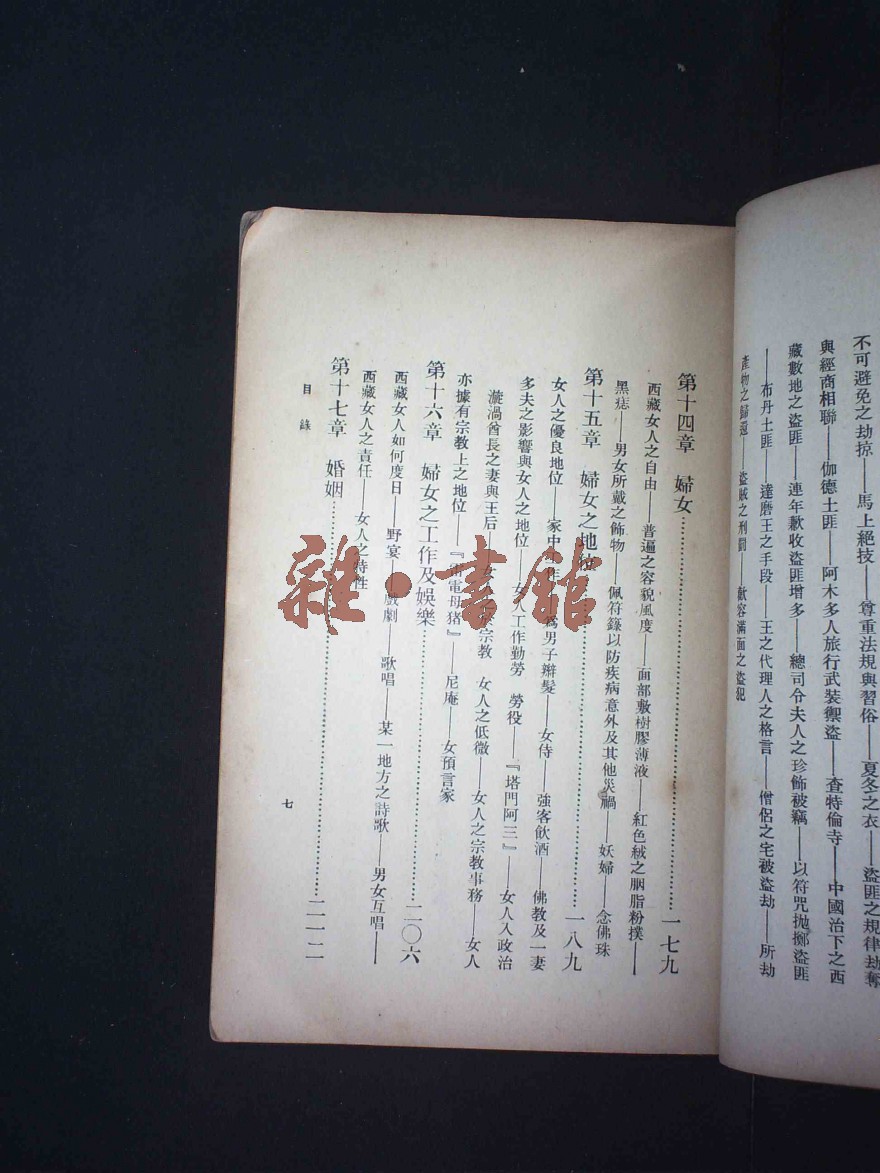 不可避免之劫掠——馬上絕技——尊重法規與習俗——夏冬之衣——盜匪之規律劫奪
與經商相聯——伽德土匪——阿木多人旅行武裝禦盜——查特倫寺——中國治下之西
藏數地之盜匪——連年歉收盜匪增多——總司令夫人之珍飾被竊——以符咒拋擲盜匪
——布丹土匪——達磨王之手段——王之代理人之格言——僧侶之宅被盜劫——所劫
產物之歸還——盜賊之刑罰——歡容滿面之盜犯
第十四章 婦女……一七九
西藏女人之自由——普遍之容貌風度——面部敷樹膠薄液——紅色絨之胭脂粉撲——
黑痣——男女所戴之飾物——佩符籙以防疾病意外及其他災禍——妖婦——念佛珠
第十五章 婦女之地位……一八九
女人之優良地位——家中工作——為男子辮髮——女侍——強客飲酒——佛教及一妻
多夫之影響與女人之地位——女人工作勤勞 勞役——『塔門阿三』——女人入政治
漩渦酋長之妻與王后——宗教 女人之低微——女人之宗教事務——女人
亦據有宗教上之地位——『電母猪』——尼庵——女預言家
第十六章 婦女之工作及娛樂……二〇六
西藏女人如何度日——野宴——戲劇——歌唱——某一地方之詩歌——男女互唱——
西藏女人之責任——女人之特性
第十七章 婚姻……二一二
目錄
七
雜·書館